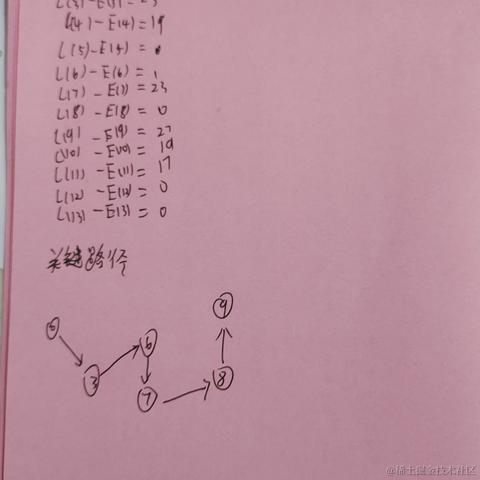 L(3)-E(3)=23
L(4)-E(4)=19
L(5)-E(5)=0
L(6)-E(6)=1
L(7)-E(7)=23
L(8)-E(8)=0
L(9)-E(9)=27
L(10)-E(10)=19
L(11)-E(11)=17
L(12)-E(12)=0
L(13)-E(13)=0
关键路径
9
0
6
3
8
7
@稀土掘金技术社区